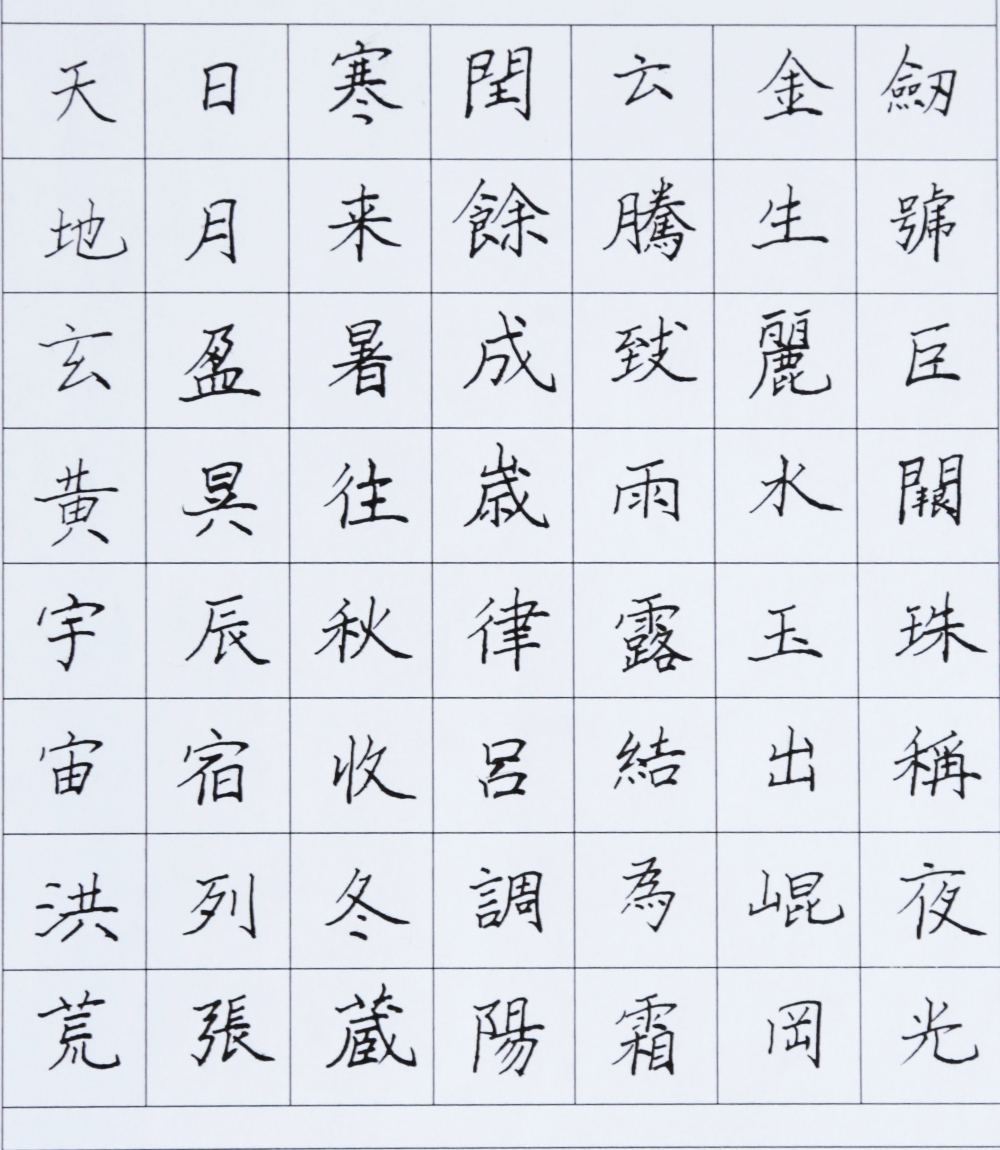 天地玄黃宇宙洪荒
日月盈昃辰宿列張
寒来暑往秋收冬蔵
閏餘成歳律呂調陽
云騰致雨露結為霜
金生麗水玉出崐岡
劒號巨闕珠稱夜光